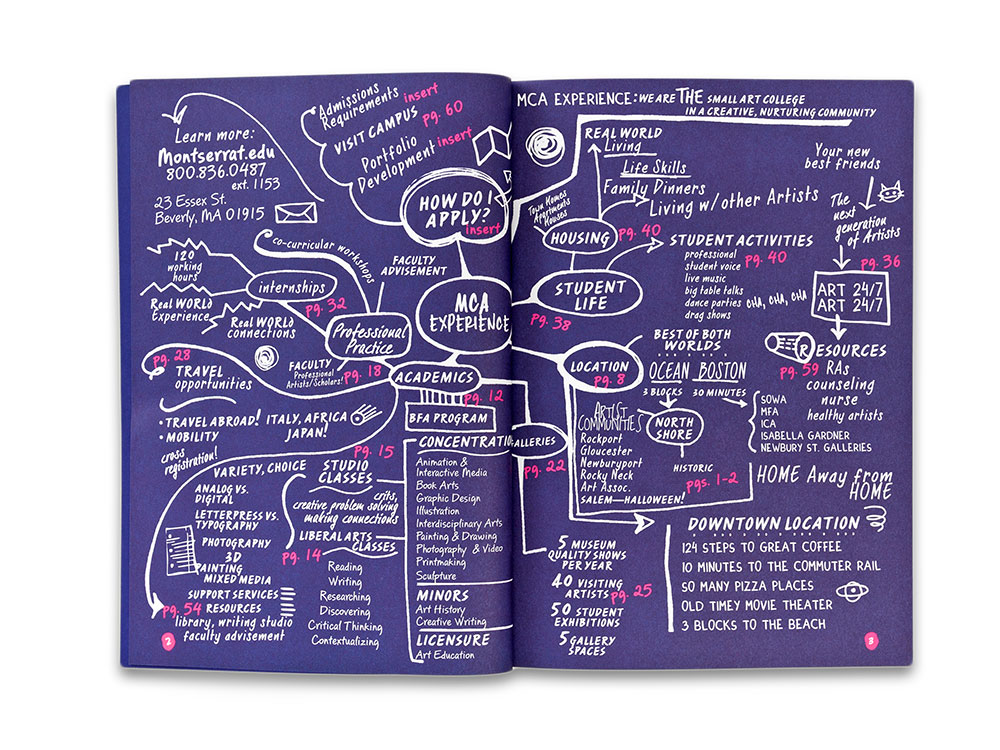 Learn more:
Montserrat.edu
800.836.0487
ext. 1153
23 Essex St.
Beverly, MA 01915
Admissions
Requirements insert
VISIT CAMPUS pg. 60
Portfolio
Development insert
HOW DO I
APPLY?
insert
120
working
hours
co-curricular workshops
FACULTY
ADVISEMENT
internships
pg. 32
Real WORLD
Experience
Real WORLD
connections
Professional
Practice
MCA
EXPERIENCE
FACULTY
Professional
Artists/Scholars!
pg. 18
pg. 28
TRAVEL
opportunities
ACADEMICS
pg. 12
BFA PROGRAM
• TRAVEL ABROAD! ITALY, AFRICA
JAPAN!
• MOBILITY
cross
registration!
pg. 15
VARIETY, CHOICE
STUDIO
CLASSES
ANALOG VS.
DIGITAL
LETTERPRESS VS.
TYPOGRAPHY
PHOTOGRAPHY
3D
PAINTING
MIXED MEDIA
crits,
creative problem solving
making connections
LIBERAL ARTS
CLASSES
pg. 14
Reading
Writing
Researching
Discovering
Critical Thinking
Contextualizing
SUPPORT SERVICES
pg. 54 RESOURCES
library, writing studio
faculty advisement
2
Animation &
Interactive Media
Book Arts
Graphic Design
Illustration
Interdisciplinary Arts
Painting & Drawing
Photography & Video
Printmaking
Sculpture
MINORS
Art History
Creative Writing
LICENSURE
Art Education
MCA EXPERIENCE: WE ARE THE SMALL ART COLLEGE
IN A CREATIVE, NURTURING COMMUNITY
REAL WORLD
Living
Life Skills
Family Dinners
Living w/ other Artists
Town Homes
Apartments
Houses
HOUSING
pg. 40
Your new
best friends
The
next
generation
of Artists
pg. 36
STUDENT
LIFE
pg. 38
STUDENT ACTIVITIES
pg. 40
professional
student voice
live music
big table talks
dance parties CHA, CHA, CHA
drag shows
ART 24/7
ART 24/7
RESOURCES
pg. 59
RAs
counseling
nurse
healthy artists
LOCATION
pg. 8
BEST OF BOTH
WORLDS
OCEAN BOSTON
3 BLOCKS 30 MINUTES
SOWA
MFA
ICA
ISABELLA GARDNER
NEWBURY ST. GALLERIES
ARTIST
COMMUNITIES
Rockport
Gloucester
Newburyport
Rocky Neck
Art Assoc.
SALEM—HALLOWEEN!
NORTH
SHORE
HISTORIC
pgs. 1-2
HOME Away from
HOME
pg. 22
5 MUSEUM
QUALITY SHOWS
PER YEAR
40 VISITING
ARTISTS pg. 25
50 STUDENT
EXHIBITIONS
5 GALLERY
SPACES
DOWNTOWN LOCATION
124 STEPS TO GREAT COFFEE
10 MINUTES TO THE COMMUTER RAIL
SO MANY PIZZA PLACES
OLD TIMEY MOVIE THEATER
3 BLOCKS TO THE BEACH
3